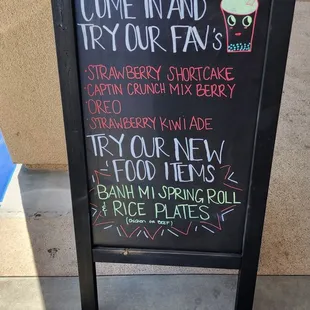 COME IN AND
TRY OUR FAV's
·STRAWBERRY SHORTCAKE
·CAPTIN CRUNCH MIX BERRY
·OREO
·STRAWBERRY KIWI ADE
TRY OUR NEW
FOOD ITEMS
BANH MI SPRING ROLL
& RICE PLATES
(CHICKEN OR BEEF)